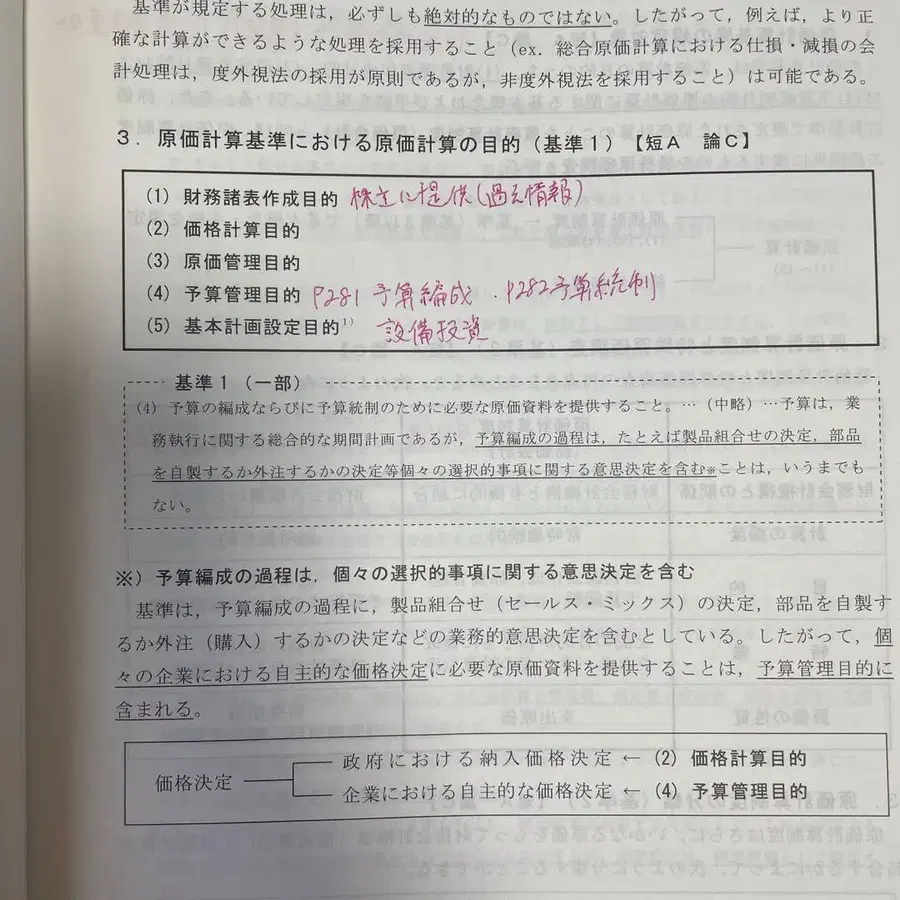 基準が規定する処理は，必ずしも絶対的なものではない。したがって，例えば，より正
確な計算ができるような処理を採用すること（ex. 総合原価計算における仕損・減損の会
計処理は，度外視法の採用が原則であるが，非度外視法を採用すること）は可能である。
3．原価計算基準における原価計算の目的（基準1）【短A　論C】
(1) 財務諸表作成目的 株主に提供(過去情報)
(2) 価格計算目的
(3) 原価管理目的
(4) 予算管理目的 P281 予算編成 ・P282予算統制
(5) 基本計画設定目的1) 設備投資
基準1（一部）
(4) 予算の編成ならびに予算統制のために必要な原価資料を提供すること。…（中略）…予算は，業
務執行に関する総合的な期間計画であるが，予算編成の過程は，たとえば製品組合せの決定，部品
を自製するか外注するかの決定等個々の選択的事項に関する意思決定を含む※ことは，いうまでも
ない。
※）予算編成の過程は，個々の選択的事項に関する意思決定を含む
基準は，予算編成の過程に，製品組合せ（セールス・ミックス）の決定，部品を自製す
るか外注（購入）するかの決定などの業務的意思決定を含むとしている。したがって，個
々の企業における自主的な価格決定に必要な原価資料を提供することは，予算管理目的に
含まれる。
価格決定
政府における納入価格決定 ← (2) 価格計算目的
企業における自主的な価格決定 ← (4) 予算管理目的